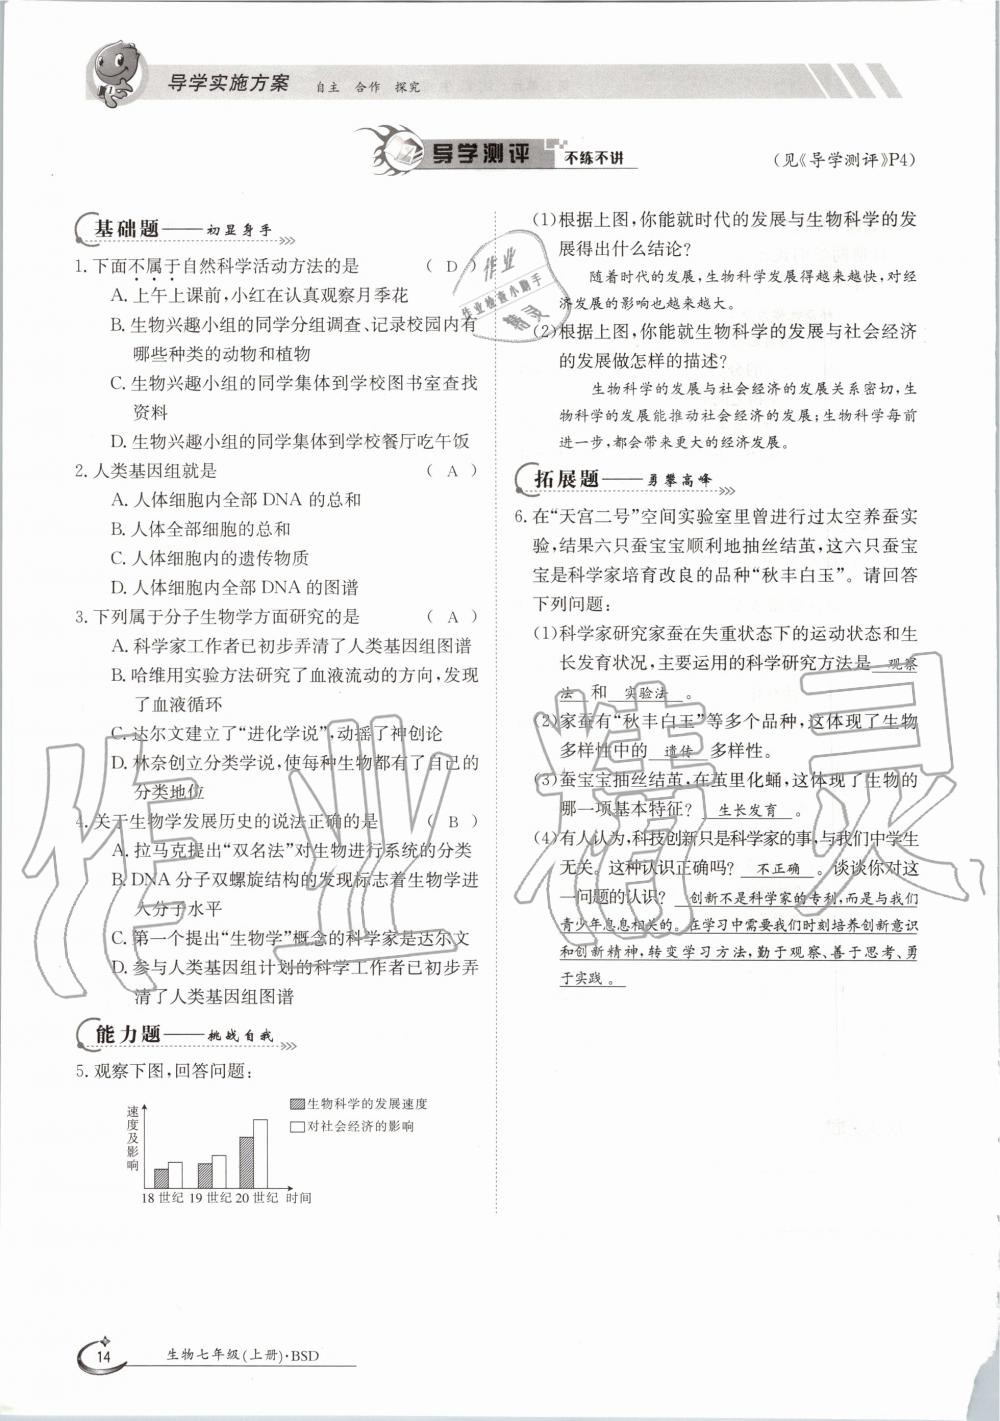 导学实施方案 自主 合作 探究
导学测评 不练不讲
(见《导学测评》P4)
基础题——初显身手
1. 下面不属于自然科学活动方法的是 ( D )
A. 上午上课前,小红在认真观察月季花
B. 生物兴趣小组的同学分组调查、记录校园内有
哪些种类的动物和植物
C. 生物兴趣小组的同学集体到学校图书室查找
资料
D. 生物兴趣小组的同学集体到学校餐厅吃午饭
2. 人类基因组就是 ( A )
A. 人体细胞内全部 DNA 的总和
B. 人体全部细胞的总和
C. 人体细胞内的遗传物质
D. 人体细胞内全部 DNA 的图谱
3. 下列属于分子生物学方面研究的是 ( A )
A. 科学家工作者已初步弄清了人类基因组图谱
B. 哈维用实验方法研究了血液流动的方向,发现
了血液循环
C. 达尔文建立了“进化学说”,动摇了神创论
D. 林奈创立分类学说,使每种生物都有了自己的
分类地位
4. 关于生物学发展历史的说法正确的是 ( B )
A. 拉马克提出“双名法”对生物进行系统的分类
B. DNA 分子双螺旋结构的发现标志着生物学进
入分子水平
C. 第一个提出“生物学”概念的科学家是达尔文
D. 参与人类基因组计划的科学工作者已初步弄
清了人类基因组图谱
能力题——挑战自我
5. 观察下图,回答问题:
速度及影响
生物科学的发展速度
对社会经济的影响
18 世纪 19 世纪 20 世纪 时间
(1)根据上图,你能就时代的发展与生物科学的发
展得出什么结论?
随着时代的发展,生物科学发展得越来越快,对经
济发展的影响也越来越大。
(2)根据上图,你能就生物科学的发展与社会经济
的发展做怎样的描述?
生物科学的发展与社会经济的发展关系密切,生
物科学的发展能推动社会经济的发展;生物科学每前
进一步,都会带来更大的经济发展。
拓展题——勇攀高峰
6. 在“天宫二号”空间实验室里曾进行过太空养蚕实
验,结果六只蚕宝宝顺利地抽丝结茧,这六只蚕宝
宝是科学家培育改良的品种“秋丰白玉”。请回答
下列问题:
(1)科学家研究家蚕在失重状态下的运动状态和生
长发育状况,主要运用的科学研究方法是 观察
法 和 实验法 。
(2)家蚕有“秋丰白玉”等多个品种,这体现了生物
多样性中的 遗传 多样性。
(3)蚕宝宝抽丝结茧,在茧里化蛹,这体现了生物的
哪一项基本特征? 生长发育 。
(4)有人认为,科技创新只是科学家的事,与我们中学生
无关。这种认识正确吗? 不正确 。谈谈你对这
一问题的认识? 创新不是科学家的专利,而是与我们
青少年息息相关的。在学习中需要我们时刻培养创新意识
和创新精神,转变学习方法,勤于观察、善于思考、勇
于实践 。
作业
作业检查小助手
精灵
作业精灵
14 生物七年级(上册)·BSD